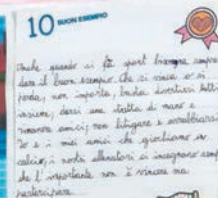 10 BUON ESEMPIO
Anche quando si fa sport bisogna sempre
dare il buon esempio. Che si vinca o si
perda, non importa, basta divertirsi tutti
insieme, darsi una stretta di mano e
rimanere amici, non litigare e arrabbiarsi.
Io e i miei amici che giochiamo a
calcio, i nostri allenatori ci insegnano sempre
che l'importante non è vincere ma
partecipare.